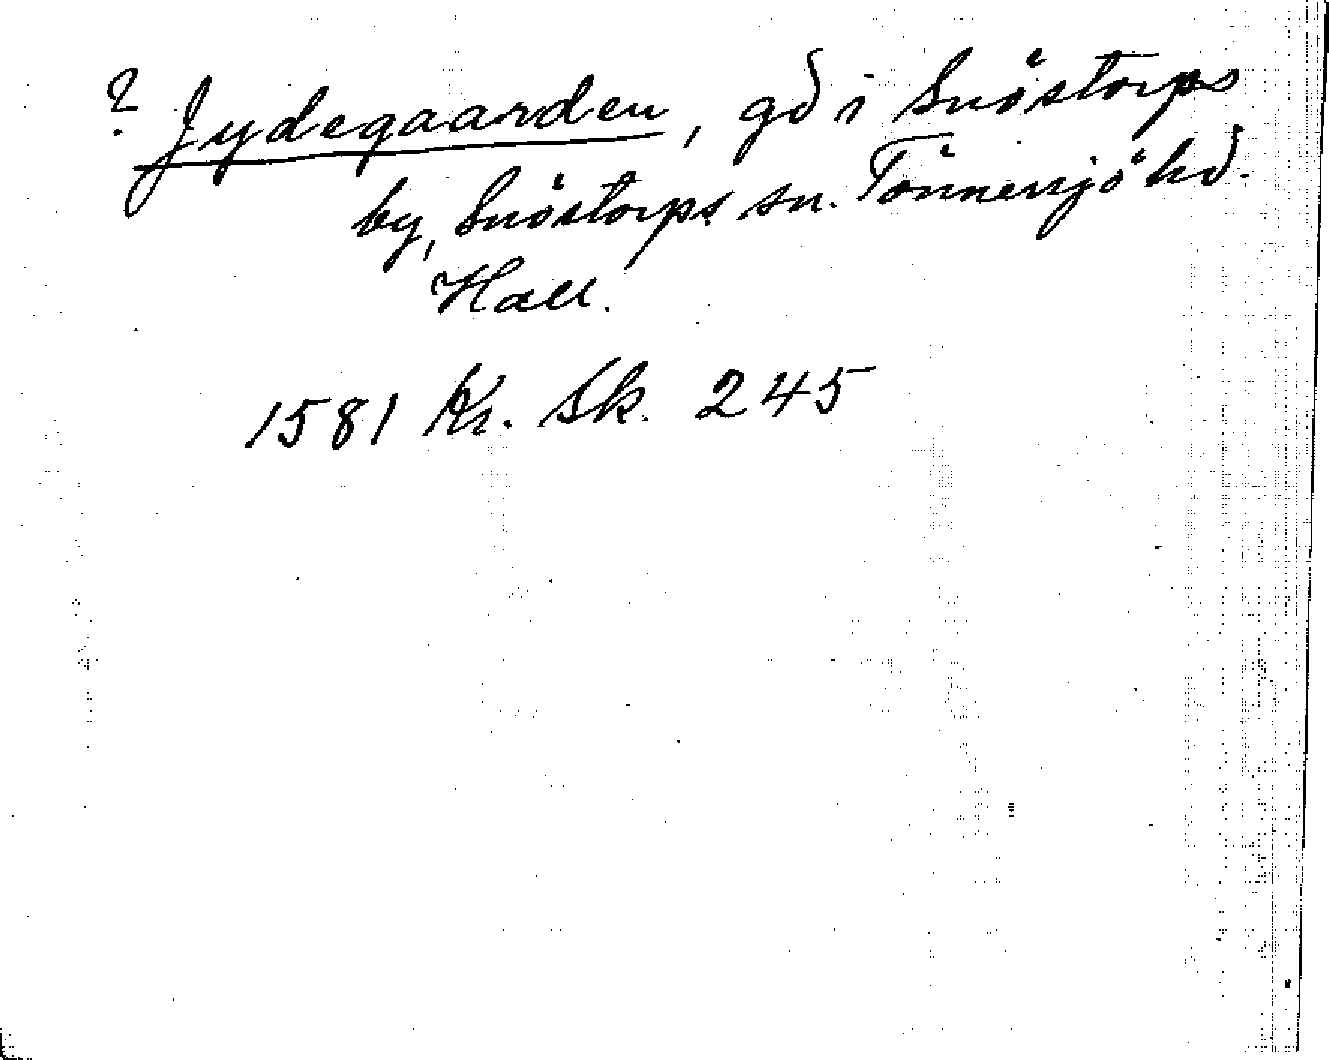 ? Jydegaarden, gd i Snöstorps
by, Snöstorps sn. Tönnersjö hd.
Hall.
1581 Kr. Sk. 245